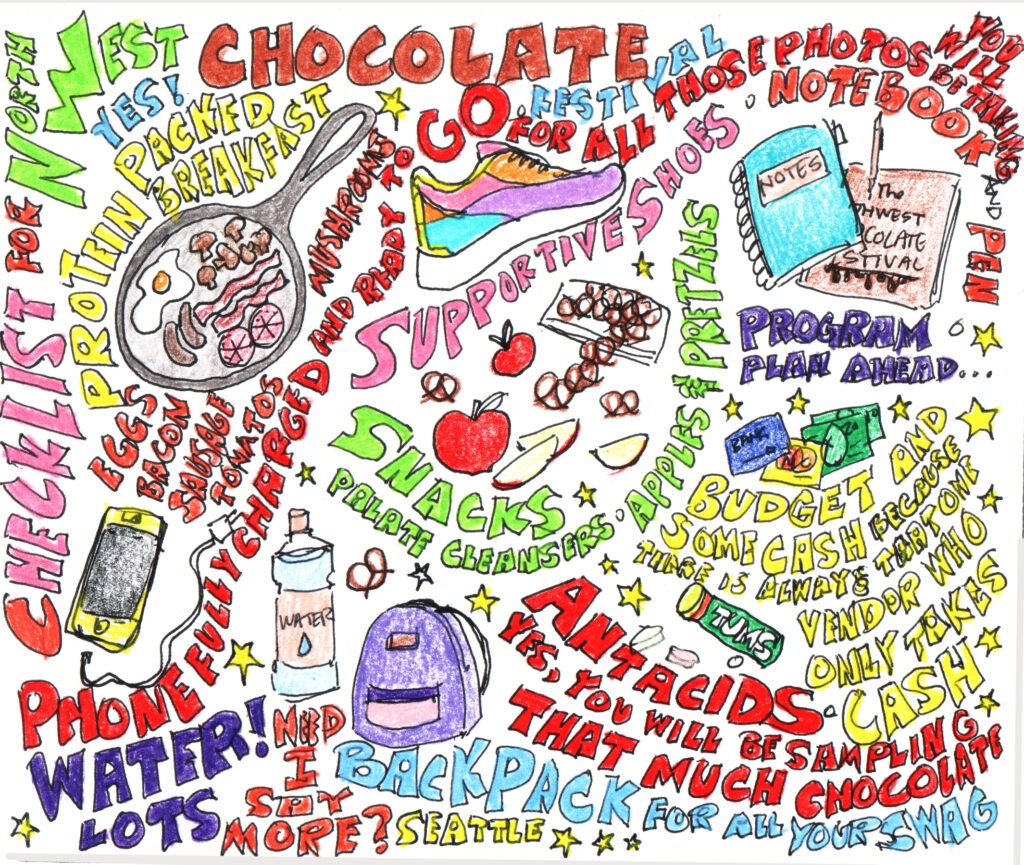 CHECKLIST FOR NORTH WEST
CHOCOLATE
FESTIVAL
YES!
PROTEIN PACKED
BREAKFAST
EGGS
BACON
SAUSAGE
TOMATO'S
MUSHROOMS
PHONE FULLY CHARGED AND READY TO GO
FOR ALL THOSE PHOTOS YOU WILL BE TAKING
SUPPORTIVE SHOES
NOTEBOOK
AND PEN
NOTES
The
THWEST
COLATE
STIVAL
PROGRAM
PLAN AHEAD...
SNACKS
PALATE CLEANSERS
APPLES & PRETZELS
BANK
BUDGET AND
SOME CASH BECAUSE
THERE IS ALWAYS THAT ONE
VENDOR WHO
ONLY TAKES
CASH
TUMS
ANTACIDS
YES, YOU WILL BE SAMPLING
THAT MUCH CHOCOLATE
WATER
WATER!
LOTS
NEED
I
SAY
MORE?
BACKPACK
FOR ALL YOUR SWAG
SEATTLE